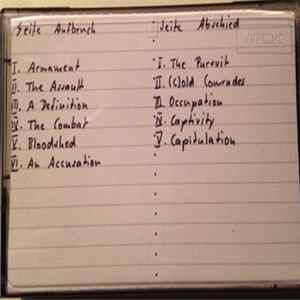 Seite Aufbruch
I. Armament
II. The Assault
III. A Definition
IV. The Combat
V. Bloodshed
VI. An Accusation
Seite Abschied
I. The Pursuit
II. (C)old Comrades
III. Occupation
IV. Captivity
V. Capitulation